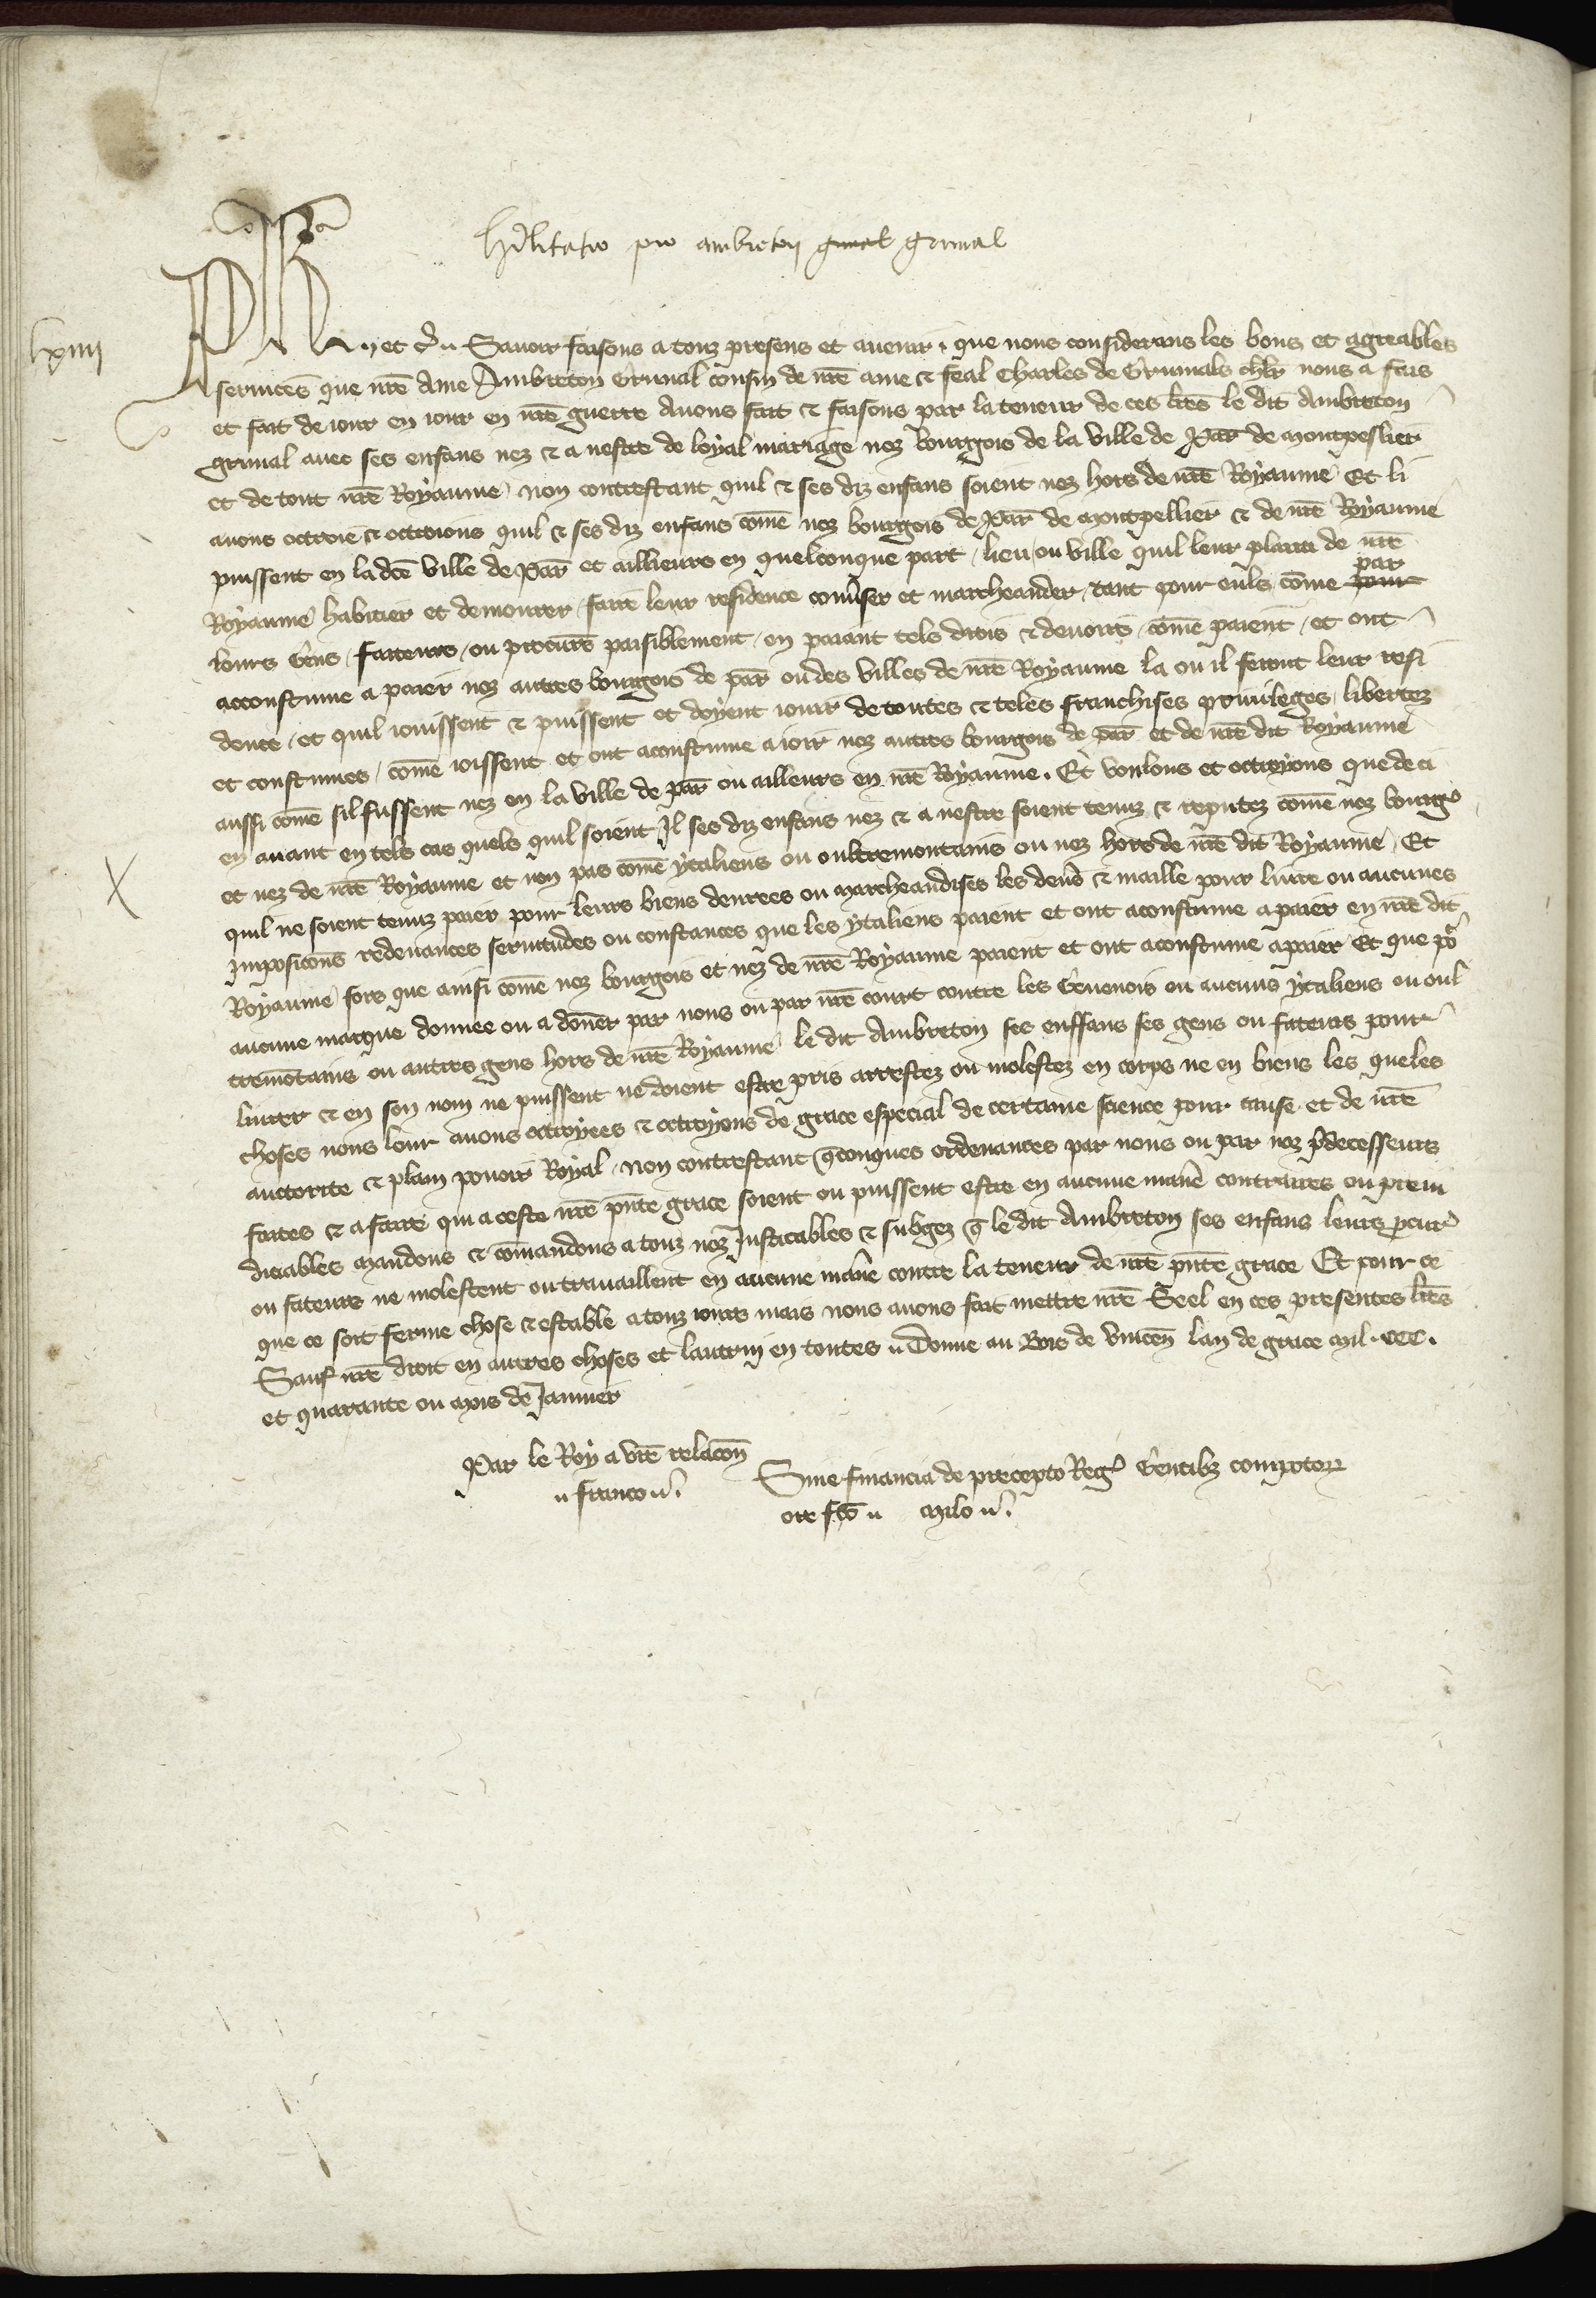 Habilitatio pro ambreton grimal grimal
lxiiii
Ph et c̄. Savoir faisons a touz presens et avenir. que nous considerans les bons et agreables
services que nr̄e ame Ambreton Grimal cousin de nr̄e ame & feal Charles de Grimals chlr̄ nous a fais
et fait de iour en iour en nr̄e guerre Avons fait & faisons par la teneur de ces lr̄es le dit Ambreton
grimal avec ses enfans nez & a nestre de loyal mariage noz bourgois de la ville de Par̄ de montpeslier
et de tout nr̄e Royaume non contrestant quil & ses diz enfans soient nez hors de nr̄e Royaume Et li
avons octroie & octroions quil & ses diz enfans com̄e noz bourgois de Par̄ de montpellier & de nr̄e Royaume
puissent en la dc̄e ville de Par̄ et aillieurs en quelconque part / lieu / ou ville quil leur plaira de nr̄e
Royaume habiter et demourer / faire leur residence conv̄ser et marcheander / tant pour euls com̄e par pour
leurs Gens / facteurs / ou procur̄s paisiblement / en paiant tels drois & devoirs / com̄e paient / et ont
acoustume a paier noz autres bourgois de par̄ ou des villes de nr̄e Royaume la ou il feront leur resi
dence / et quil iouissent & puissent et doyent iouir de toutes & teles franchises privileges / libertez
et coustumes / com̄e ioissent et ont acoustume a ioir noz autres bourgois de par̄ et de nr̄e dit Royaume
aussi com̄e sil fussent nez en la ville de par̄ ou ailleurs en nr̄e Royaume. Et voulons et octroyons que de ci
en avant en tels cas quels quil soient Il ses diz enfans nez & a nestre soient tenuz & reputez com̄e noz bourg̾
et nez de nr̄e Royaume et non pas com̄e ytaliens ou oultremontains ou nez hors de nr̄e dit Royaume / Et
quil ne soient tenuz paier pour leurs biens denrees ou marcheandises les den̄s & maille pour livre ou aucunes
Imposicon̄s redevances servitudes ou constances que les ytaliens paient et ont acoustume a paier en nr̄e dit
Royaume / fors que ainsi com̄e noz bourgois et nez de nr̄e Royaume paient et ont acoustume a paier Et que po̾
aucune marque donnee ou a don̄er par nous ou par nr̄e court contre les Genenois ou aucuns ytaliens ou oul
tremo̅tains ou autres gens hors de nr̄e Royaume le dit Ambreton ses enffans ses gens ou fateurs pour
luirer & en son nom ne puissent ne doient estre pris arrestez ou molestez en corps ne en biens les queles
choses nous leur avons octroyees & octroyons de grace especial de certaine science pour cause et de nr̄e
auctorite & plain povoir Royal / Non contrestant q̄conques ordenances par nous ou par noz p̄decesseurs
faites & a faire qui a ceste nr̄e pn̄te grace soient ou puissent estre en aucune mani̅e contraires ou preiu
diciables mandons & com̄andons a touz noz Justiciables & subgez q̄ le dit Ambreton ses enfans leurs procur̾
ou fateurs ne molestent ou travaillent en aucune mani̅e contre la teneur de nr̄e pn̄te grace Et pour ce
que ce soit ferme chose & estable a touz iours mais nous avons fait mettre nr̄e Seel en ces presentes lr̄es
Sauf nr̄e droit en autres choses et lautruy en toutes Donne au Bois de Vincen̄ lan de grace mil. CCC.
et quarante ou mois de Janvier
Par le Roy a vr̄e relacon̄ Sine financia de precepto Reg̾ Gentibz compotoꝝ
franco. ore fc̄o milo.